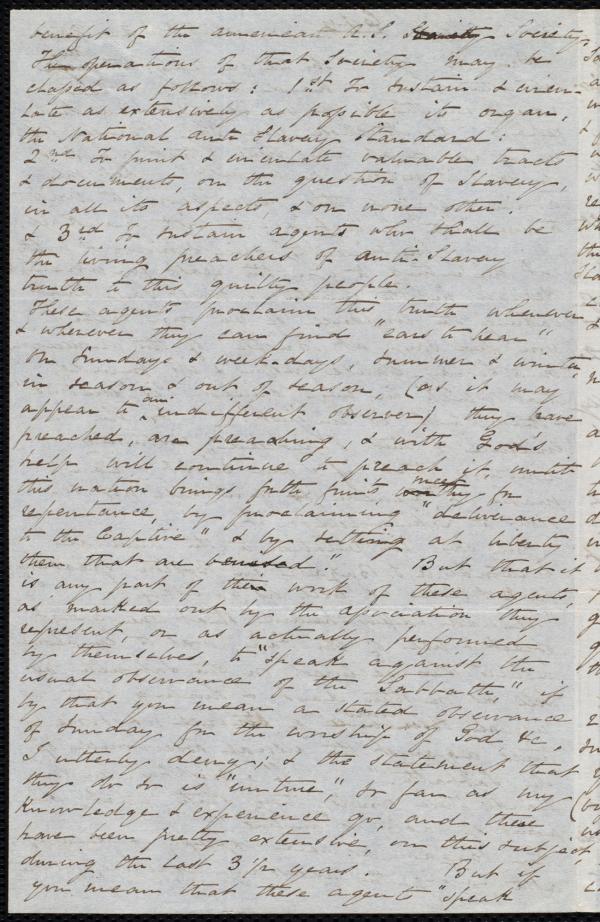 benefit of the American A.S. Society Society,
The operations of that Society may be
classed as follows: 1st To sustain & circu-
late as extensively as possible its organ,
the National Anti Slavery Standard:
2nd To print & circulate valuable tracts
& documents, on the question of Slavery,
in all its aspects, & on none other.
& 3rd To sustain agents who shall be
the living preachers of anti-Slavery
truth to this guilty people.
These agents proclaim this truth whenever
& wherever they can find "ears to hear"
on Sundays & week-days, summer & winter,
in season & out of season, (as it may
appear to an indifferent observer) they have
preached, are preaching, & with God's
help will continue to preach it, until
this nation brings forth fruits, meet for
repentance, by proclaiming "deliverance
to the Captive" & by setting at liberty
them that are bruised." But that it
is any part of the work of these agents,
as marked out by the association they
represent, or as actually performed
by themselves, to "speak against the
usual observance of the Sabbath," if
by that you mean a stated observance
of Sunday for the worship of God &c,
I utterly deny; & the statement that
they do so is "untrue," so far as my
knowledge & experience go, and these
have been pretty extensive, on this subject,
during the last 3½ years. But if
you mean that these agents "speak